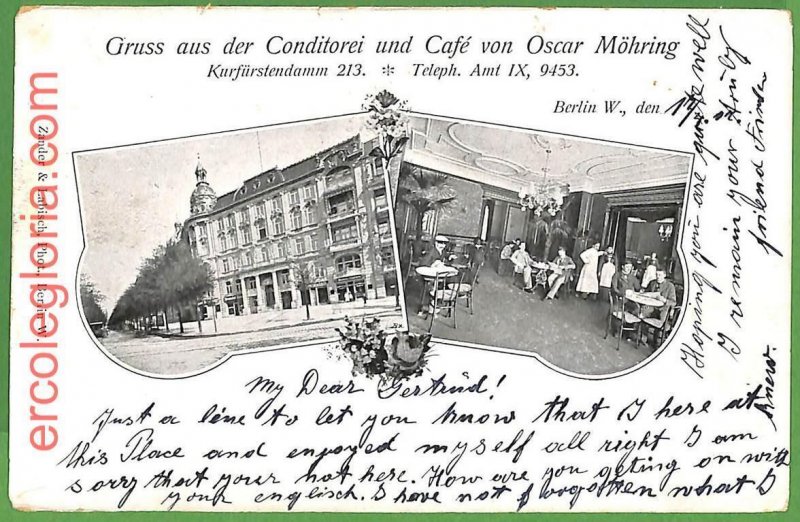 Gruss aus der Conditorei und Café von Oscar Möhring
Kurfürstendamm 213. * Teleph. Amt IX, 9453.
Berlin W., den
My Dear Gertrud!
Just a line to let you know that I here at
this Place and enjoyed myself all right I am
sorry that your not here. How are you geting on with
your englisch. I have not forgotten what I
knew.
Hoping you are quite well
I remain your truly
friend
Zander & Labisch, Phot., Berlin W.
ercolegloria.com